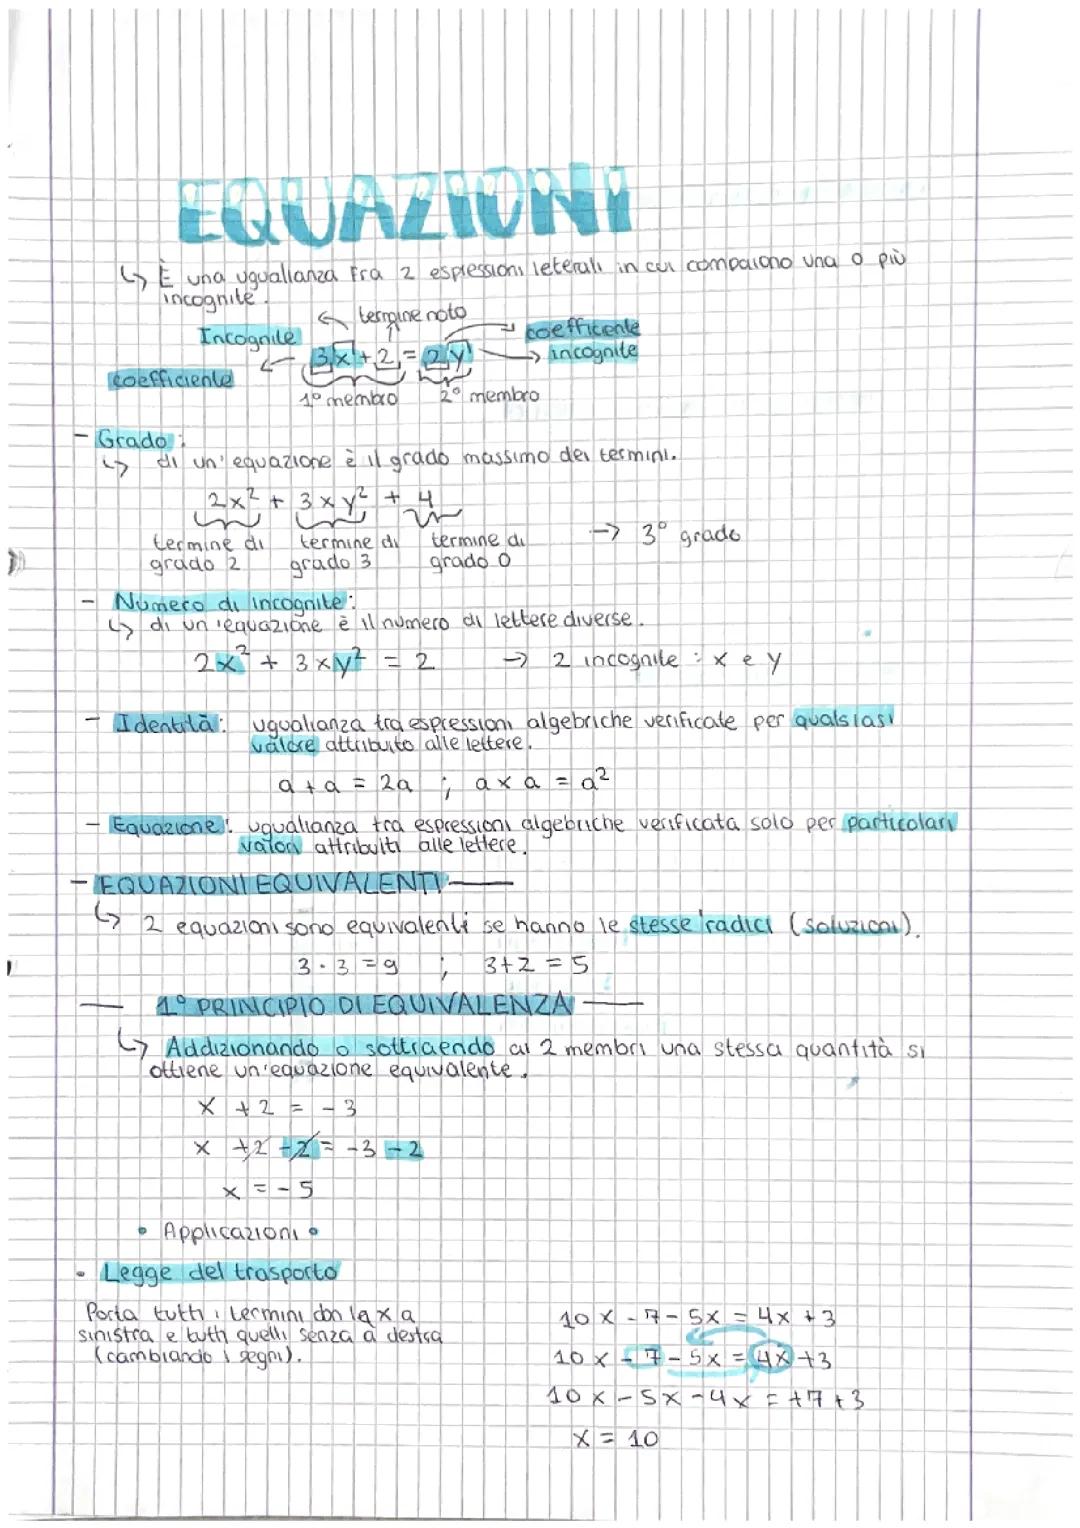 EQUAZIONI
↳ È una ugualianza fra 2 espressioni leterali in cui compaiono una o più
incognite.
← termine noto
Incognite
coefficente
3x + 2 = 2y
→ incognite
coefficiente
1° membro 2° membro
- Grado:
↳ di un'equazione è il grado massimo dei termini.
2x² + 3xy² + 4
termine di termine di termine di → 3° grado
grado 2 grado 3 grado 0
- Numero di incognite:
↳ di un'equazione è il numero di lettere diverse.
2x² + 3xy² = 2 → 2 incognite : x e y
- Identità: ugualianza tra espressioni algebriche verificate per qualsiasi
valore attribuito alle lettere.
a + a = 2a ; a x a = a²
- Equazione: ugualianza tra espressioni algebriche verificata solo per particolari
valori attribuiti alle lettere.
- EQUAZIONI EQUIVALENTI
↳ 2 equazioni sono equivalenti se hanno le stesse radici (soluzioni).
3 · 3 = 9 ; 3+2 = 5
1° PRINCIPIO DI EQUIVALENZA
↳ Addizionando o sottraendo ai 2 membri una stessa quantità si
ottiene un'equazione equivalente.
x + 2 = - 3
x +2 -2 = -3 -2
x = - 5
• Applicazioni •
• Legge del trasporto
Porta tutti i termini con la x a
sinistra e tutti quelli senza a destra
(cambiando i segni).
10 x - 7 - 5x = 4x + 3
10 x - 7 - 5x = 4x +3
10 x - 5x - 4x = +7 +3
x = 10